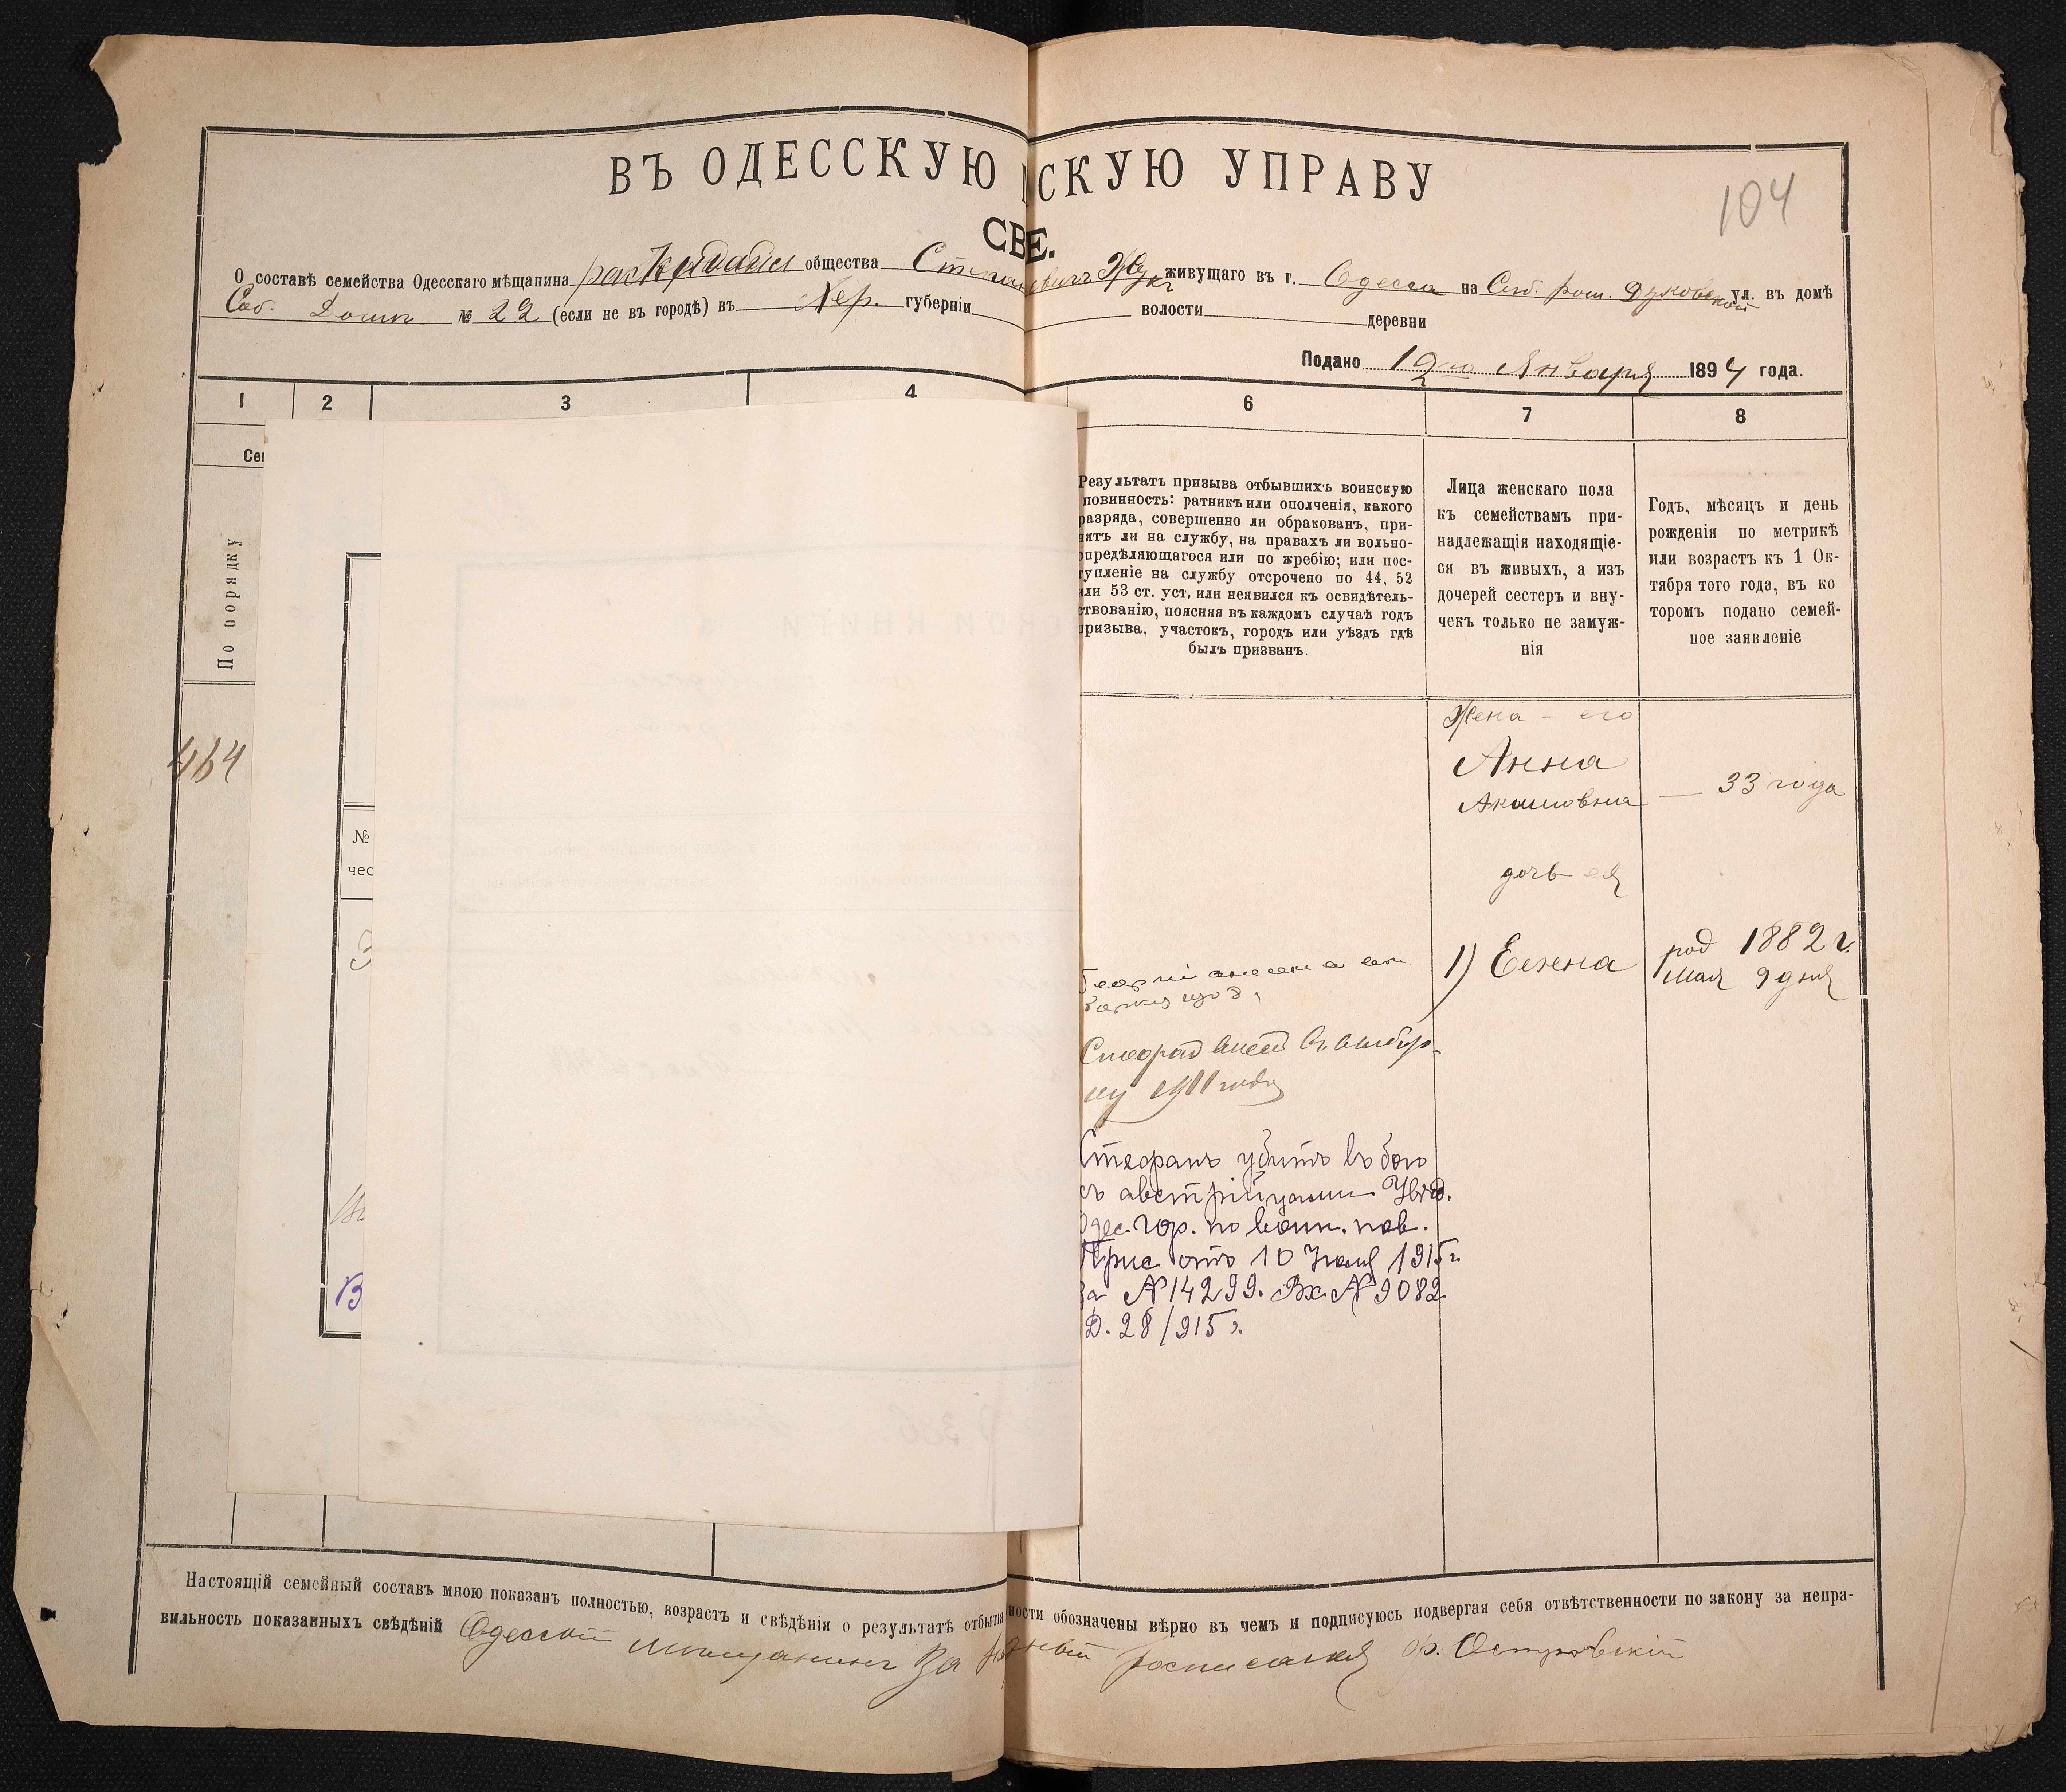 ВЪ ОДЕССКУЮ СКУЮ УПРАВУ
104
СВЕ.
О составѣ семейства Одесскаго мѣщанина общества живущаго въ г. Одесса на ул. въ домѣ
Соб. № 22 (если не въ городѣ) въ Хер. губерніи волости деревни
Подано 12го Января 1894 года.
1 2 3 4 6 7 8
По порядку
Результатъ призыва отбывшихъ воинскую
повинность: ратникъ или ополченія, какого
разряда, совершенно ли обракованъ, при-
нятъ ли на службу, на правахъ ли вольно-
опредѣляющагося или по жребію; или пос-
тупленіе на службу отсрочено по 44, 52
или 53 ст. уст. или неявился къ освидѣтель-
ствованію, поясняя въ каждомъ случаѣ годъ
призыва, участокъ, городъ или уѣздъ гдѣ
былъ призванъ.
Лица женскаго пола
къ семействамъ при-
надлежащія находящіе-
ся въ живыхъ, а изъ
дочерей сестеръ и вну-
чекъ только не замуж-
нія
Годъ, мѣсяцъ и день
рожденія по метрикѣ
или возрастъ къ 1 Ок-
тября того года, въ ко
торомъ подано семей-
ное заявленіе
464
Жена - его
Анна
— 33 года
№
чес
дочь ея
1) Елена
род 1882 г.
мая 9 дня
1911 году
Стефанъ убитъ въ бою
съ австрійцами Увѣд.
Одес. Гор. по воин. пов.
Прис отъ 10 Іюля 1915 г.
за № 14299. Вх. № 9082
Д. 28/915 г.
В
Настоящій семейный составъ мною показанъ полностью, возрастъ и свѣдѣнія о результатѣ отбытія ности обозначены вѣрно въ чемъ и подписуюсь подвергая себя отвѣтственности по закону за непра-
вильность показанныхъ свѣдѣній Одесскій мѣщанинъ За росписался Ф. Островскій